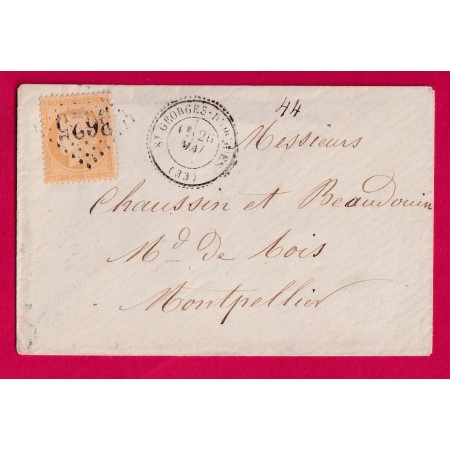 3625
ST GEORGES-D'ORQUES
26
MAI
(33)
44
Messieurs
Chaussin et Beaudouin
Md. de bois
Montpellier